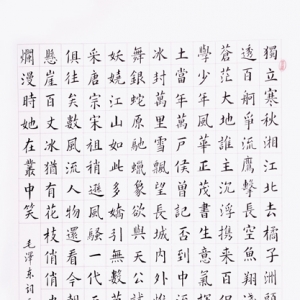 獨立寒秋湘江北去橘子洲頭
透百舸爭流鷹擊長空魚翔淺
蒼茫大地誰主沉浮攜來百侶
學少年風華正茂書生意氣
土當年萬戶侯曾記否到
冰封萬里雪飄望長城內外
舞銀蛇原馳蠟象欲與天公
妖嬈江山如此多嬌引無數
采唐宗宋祖稍遜風騷一代天
俱往矣數風流人物還看今朝
懸崖百丈冰猶有花枝俏俏
爛漫時她在叢中笑
毛澤東詞